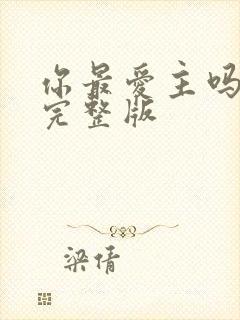 你最爱主吗
完整版
梁倩